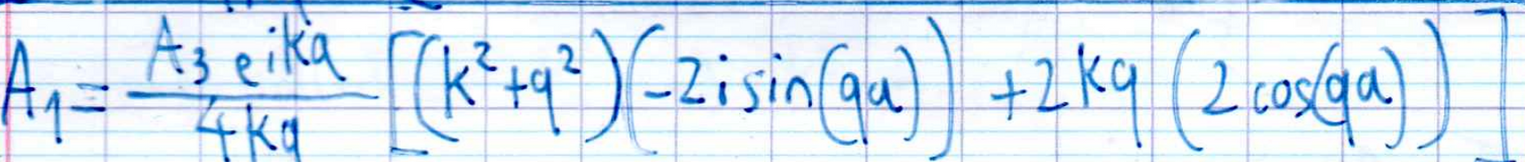 A₁ = \frac{A₃ e^{ika}}{4kq} [(k²+q²)(-2i sin(qa)) + 2kq (2 cos(qa))]